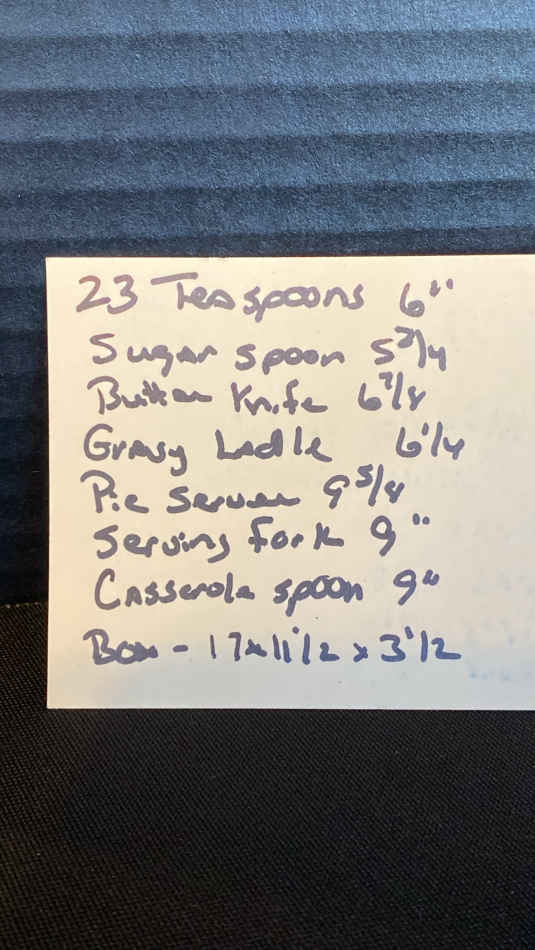 23 Teaspoons 6"
Sugar spoon 5 3/4
Butter Knife 6 7/8
Gravy Ladle 6 1/4
Pie Server 9 5/8
Serving fork 9"
Casserole spoon 9"
Box - 17x11 1/2 x 3 1/2